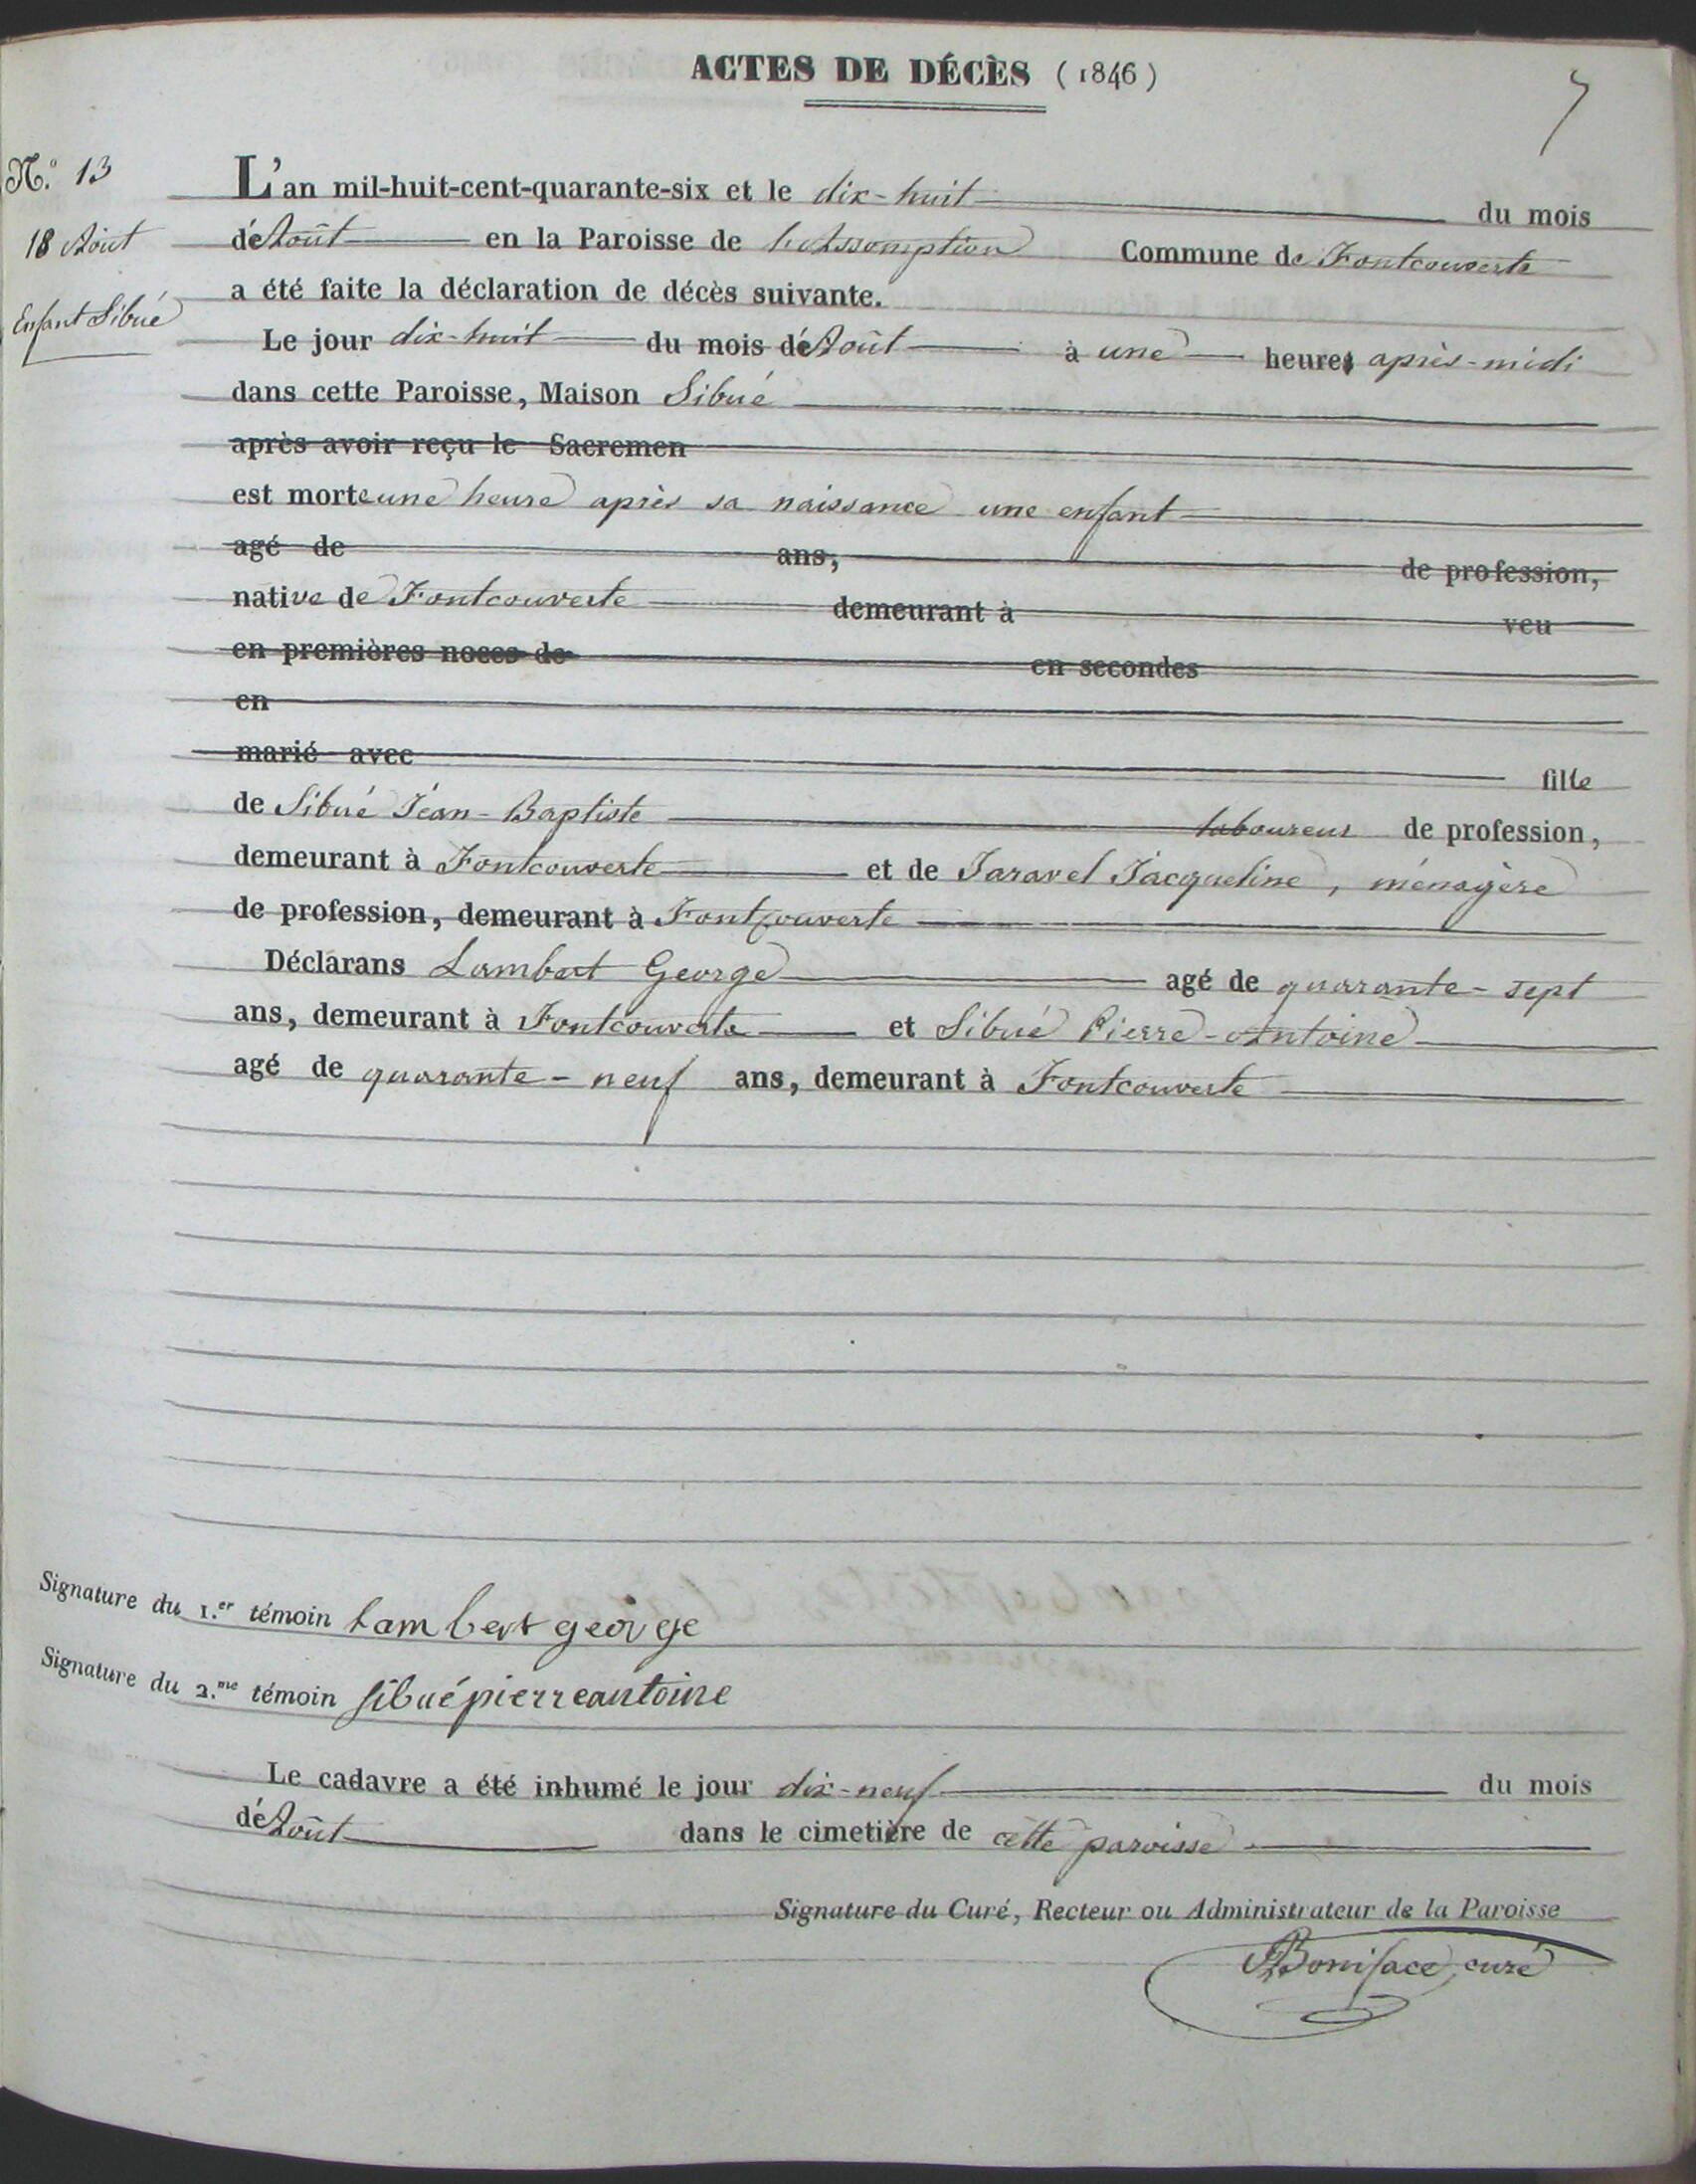 ACTES DE DÉCÈS (1846)
7
N.° 13
18 Août
Enfant Sibué
L'an mil-huit-cent-quarante-six et le dix-huit du mois
d'Août en la Paroisse de l'Assomption Commune de Fontcouverte
a été faite la déclaration de décès suivante.
Le jour dix-huit du mois d'Août à une heure après-midi
dans cette Paroisse, Maison Sibué
après avoir reçu le Sacremen
est morte une heure après sa naissance une enfant
agé de ans, de profession,
native de Fontcouverte demeurant à veu
en premières noces de en secondes
en
marié avec fille
de Sibué Jean-Baptiste laboureur de profession,
demeurant à Fontcouverte et de Jaravel Jacqueline, ménagère
de profession, demeurant à Fontcouverte
Déclarans Lambert George agé de quarante-sept
ans, demeurant à Fontcouverte et Sibué Pierre-Antoine
agé de quarante-neuf ans, demeurant à Fontcouverte
Signature du 1.er témoin Lambert george
Signature du 2.me témoin sibué pierre antoine
Le cadavre a été inhumé le jour dix-neuf du mois
d'Août dans le cimetière de cette paroisse
Signature du Curé, Recteur ou Administrateur de la Paroisse
Boniface, curé